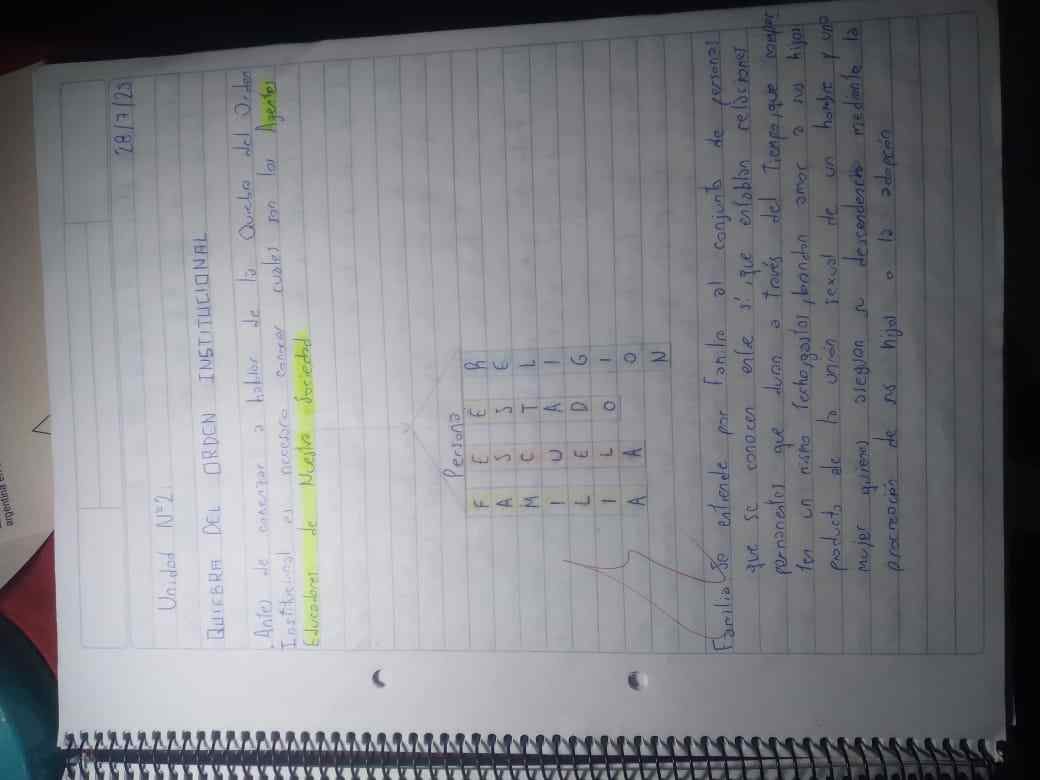 28/7/20
Unidad N°2
QUIEBRA DEL ORDEN INSTITUCIONAL
Antes de comenzar a hablar de la Quiebra del Orden
Institucional es necesario conocer cuales son los Agentes
Educadores de Nuestra Sociedad
Persona
F E E R
A S S E
M C T L
I U A I
L E D G
I L O I
A A O
N
Familia: Se entiende por Familia al conjunto de personas
que se conocen entre sí, que entablan relaciones
permanentes que duran a través del Tiempo, que compar
ten un mismo techo, gastos, brindan amor a sus hijos
producto de la unión sexual de un hombre y una
mujer quienes aseguran su descendencia mediante la
procreación de sus hijos o la adopción
argentina